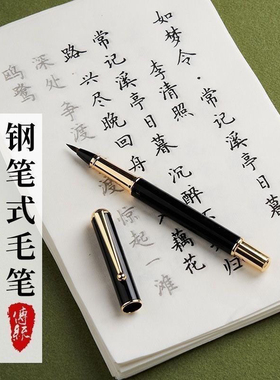 如梦令·常记溪亭日暮
李清照
常记溪亭日暮 沉醉不知归
路 兴尽晚回舟 藕花
深处 争渡 惊起一滩
鸥鹭
钢笔式毛笔